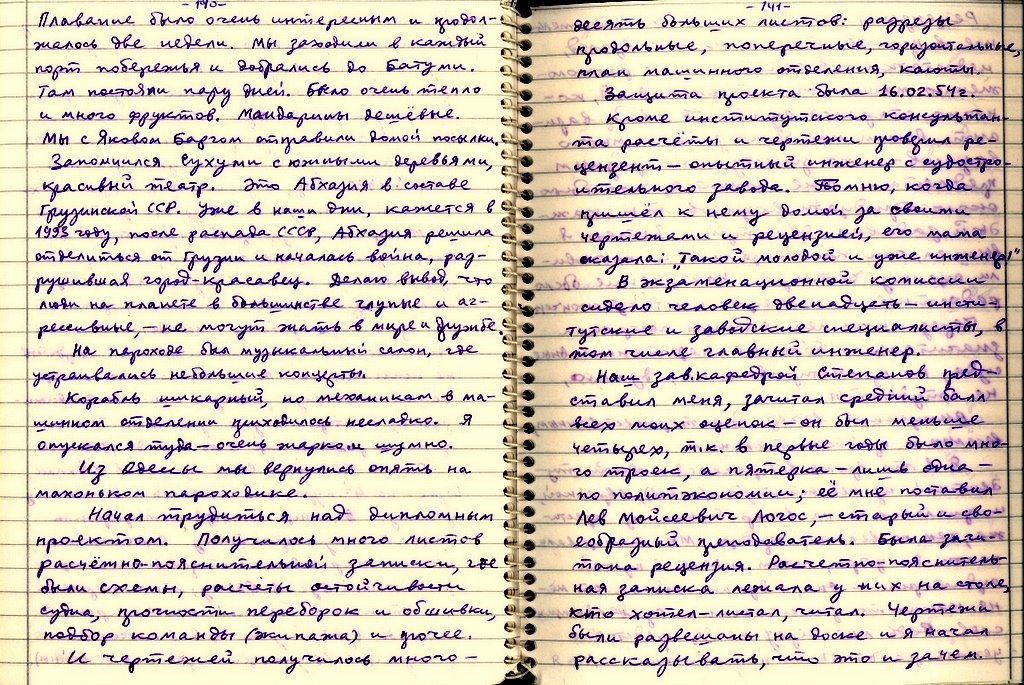 -140-
Плавание было очень интересным и продол-
жалось две недели. Мы заходили в каждый
порт побережья и добрались до Батуми.
Там постояли пару дней. Было очень тепло
и много фруктов. Мандарины дешёвые.
Мы с Яковом Баргом отправили домой посылки.
Запомнился Сухуми с южными деревьями,
красивый театр. Это Абхазия в составе
Грузинской ССР. Уже в наши дни, кажется в
1993 году, после распада СССР, Абхазия решила
отделиться от Грузии и началась война, раз-
рушившая город-красавец. Делаю вывод, что
люди на планете в большинстве глупые и аг-
рессивные, – не могут жить в мире и дружбе.
На пароходе был музыкальный салон, где
устраивались небольшие концерты.
Корабль шикарный, но механикам в ма-
шинном отделении приходилось несладко. Я
опускался туда – очень жарко и шумно.
Из Одессы мы вернулись опять на
махоньком пароходике.
Начал трудиться над дипломным
проектом. Получилось много листов
расчётно-пояснительной записки, где
были схемы, расчёты остойчивости
судна, прочности переборок и обшивки,
подбор команды (экипажа) и прочее.
И чертежей получилось много –
-141-
десять больших листов: разрезы
продольные, поперечные, горизонтальные,
план машинного отделения, каюты.
Защита проекта была 16.02.54г.
Кроме институтского консультан-
та расчёты и чертежи проверил ре-
цензент – опытный инженер с судостро-
ительного завода. Помню, когда
пришёл к нему домой за своими
чертежами и рецензией, его мама
сказала: „Такой молодой и уже инженер!"
В экзаменационной комиссии
сидело человек двенадцать – инсти-
тутские и заводские специалисты, в
том числе главный инженер.
Наш зав.кафедрой Степанов пред-
ставил меня, зачитал средний балл
всех моих оценок – он был меньше
четырех, т.к. в первые годы было мно-
го троек, а пятерка – лишь одна –
по политэкономии; её мне поставил
Лев Мойсеевич Логос, – старый и сво-
еобразный преподаватель. Была зачи-
тана рецензия. Расчетно-пояснитель-
ная записка лежала у них на столе,
кто хотел – листал, читал. Чертежи
были развешаны на доске и я начал
рассказывать, что это и зачем.